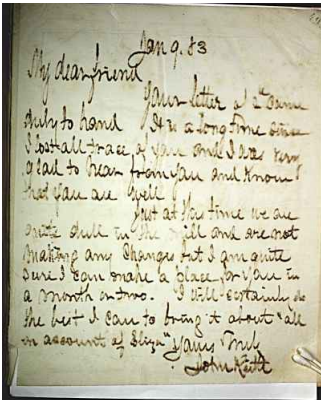 Jan 9. 83
My dear friend
Your letter of 2d came
duly to hand It is a long time since
I lost all trace of you and I was very
glad to hear from you and know
that you are well
Just at this time we are
quite dull in the mill and are not
making any changes but I am quite
sure I can make a place for you in
a month or two. I will certainly do
the best I can to bring it about "all
on account of Eliza" Yours Truly
John Keith